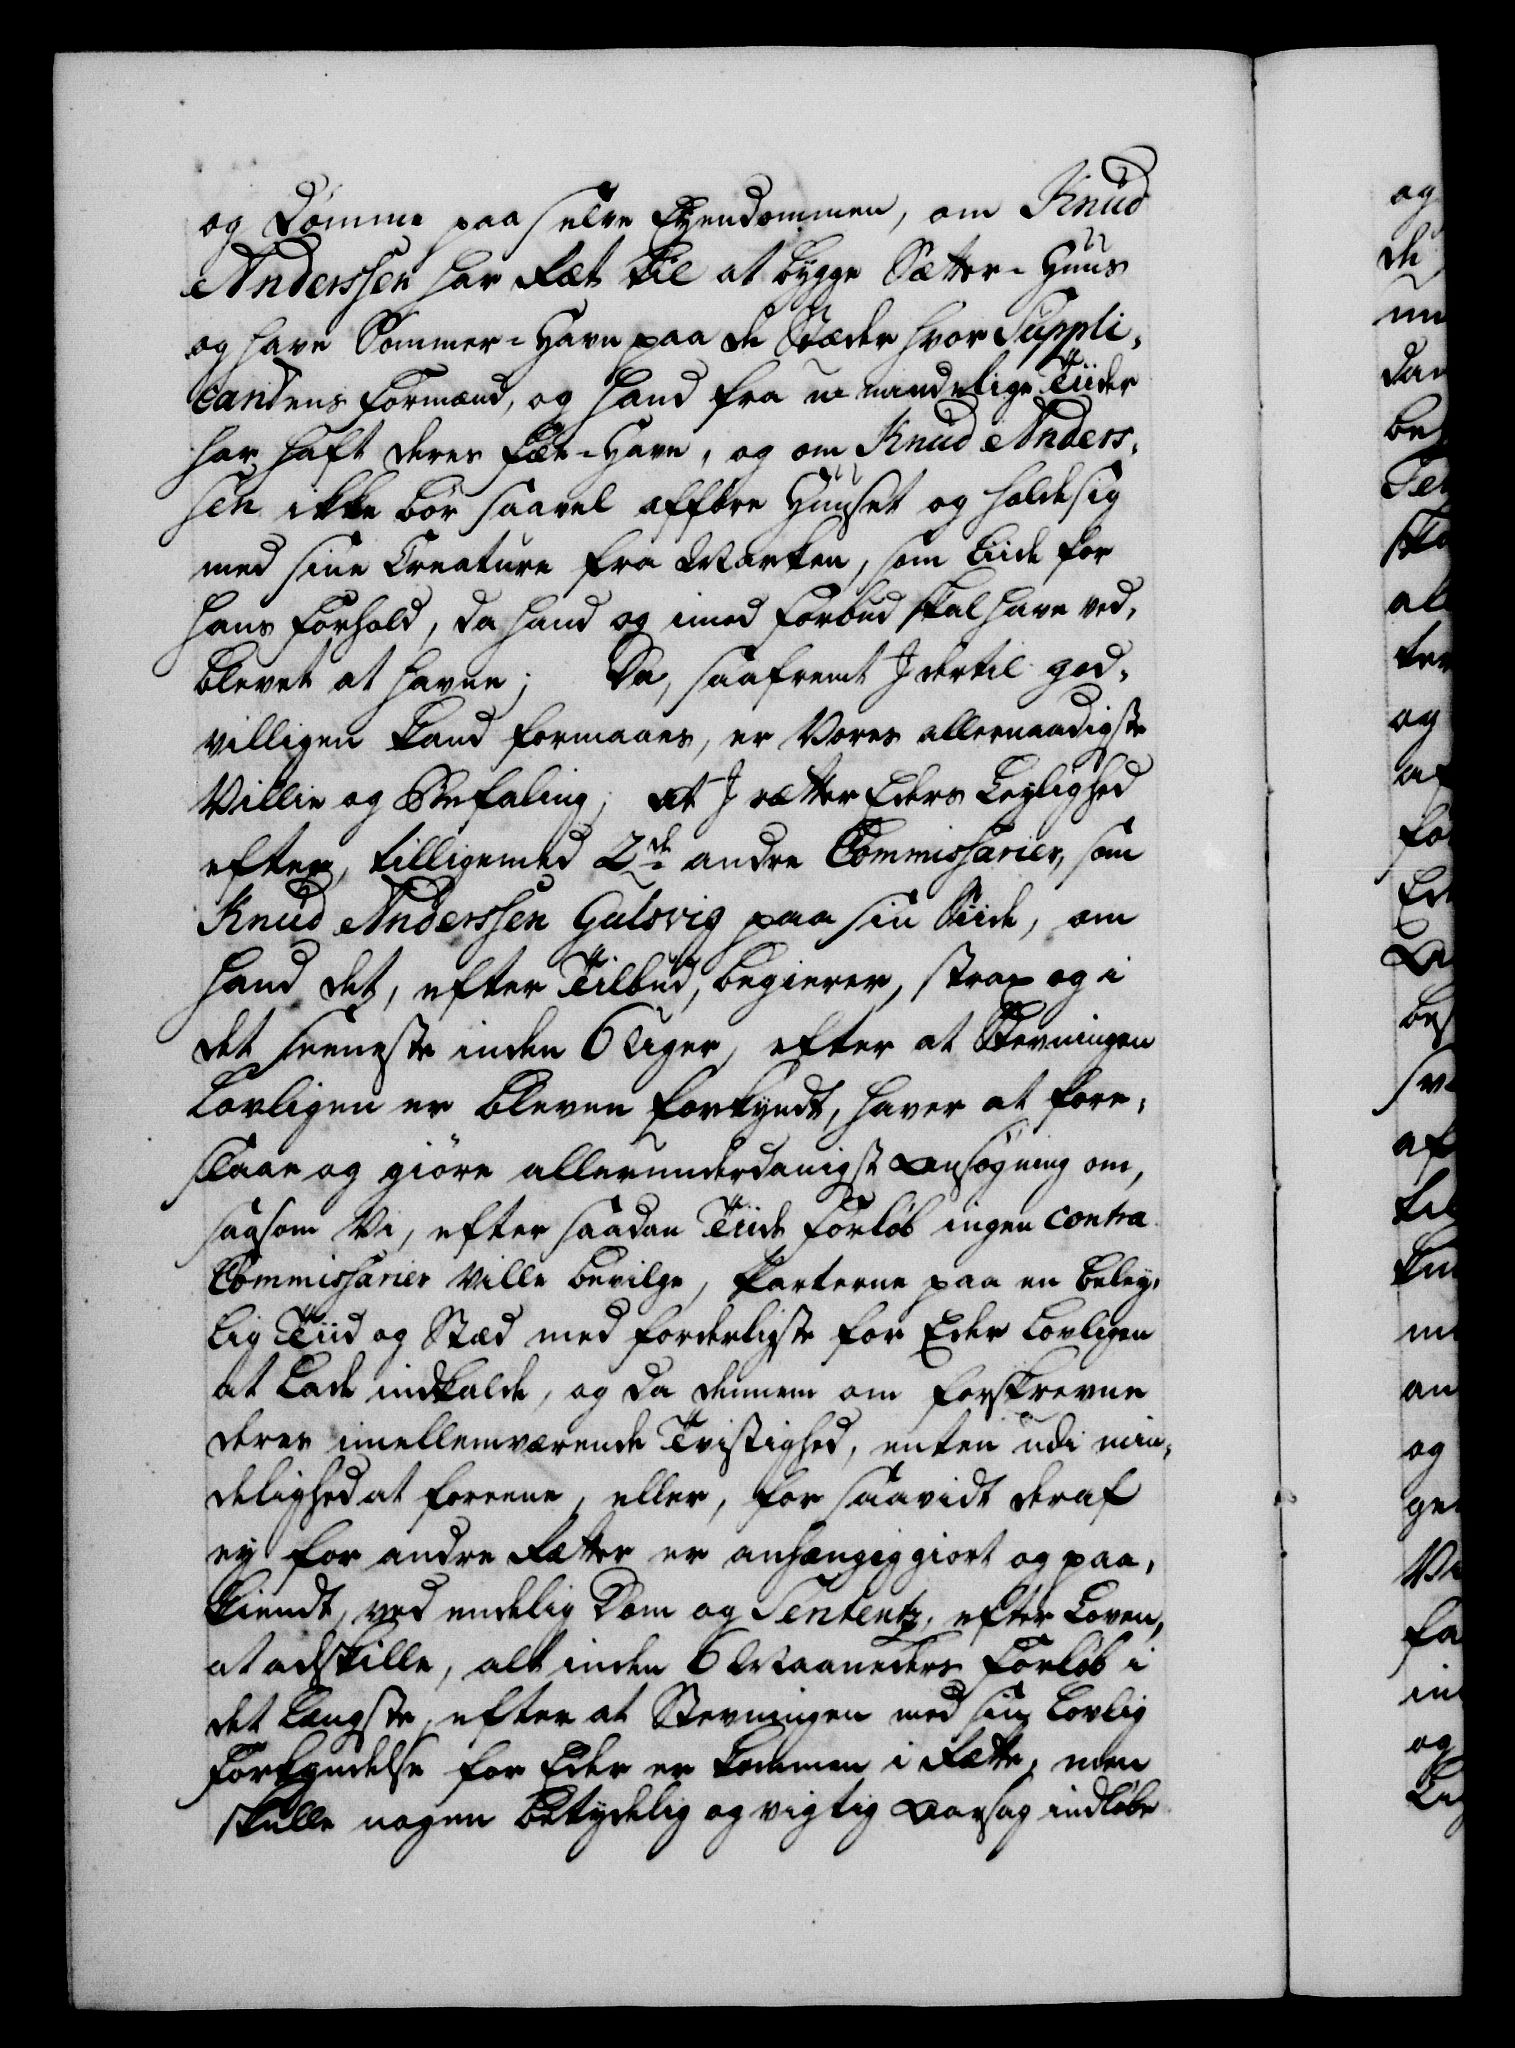 og Dømme paa selve Eyendommen, om Knud
Anderssen har Ræt til at bygge Sætter-Huus
og have Sommer-Havn paa de Stæder hvor Suppli-
cantens Formænd, og hand fra u-mindelige Tiider
har haft deres Fæe-Havn, og om Knud Anders-
sen ikke bør saavel afføre Huuset og holde sig
med sine Creature fra Marken, som liide for
hans Forhold, da hand og imod Forbud skal have ved-
blevet at havne; Da, saafremt I dertil god-
villigen kand formaaes, er Vores allernaadigste
Villie og Befaling; at I rætter Eders Leylighed
efter, tilligemed 2de andre Commissarier, som
Knud Anderssen Gulsvig paa sin Siide, om
hand det, efter Tilbud, begierer, strax og i
det seeneste inden 6 Uger, efter at Stevningen
Lovligen er bleven forkyndt, haver at fore-
slaae og giøre allerunderdanigst Ansøgning om,
saasom Vi, efter saadan Tiids Forløb ingen contra
Commissarier ville bevilge, Parterne paa en beley-
lig Tiid og Stæd med forderligste for Eder Lovligen
at lade indkalde, og da dennem om forskrevne
deres imellemværende Tvistighed, enten udi min-
delighed at foreene, eller, for saavidt deraf
ey for andre Rætter er anhængig giort og paa-
kiendt, ved endelig Dom og Sententz, efter Loven,
at adskille, alt inden 6 Maaneders Forløb i
det længste, efter at Stevningen med sin Lovlig
Forkyndelse for Eder er kommen i Rætte, men
skulle nogen betydelig og vigtig Aarsag indløbe